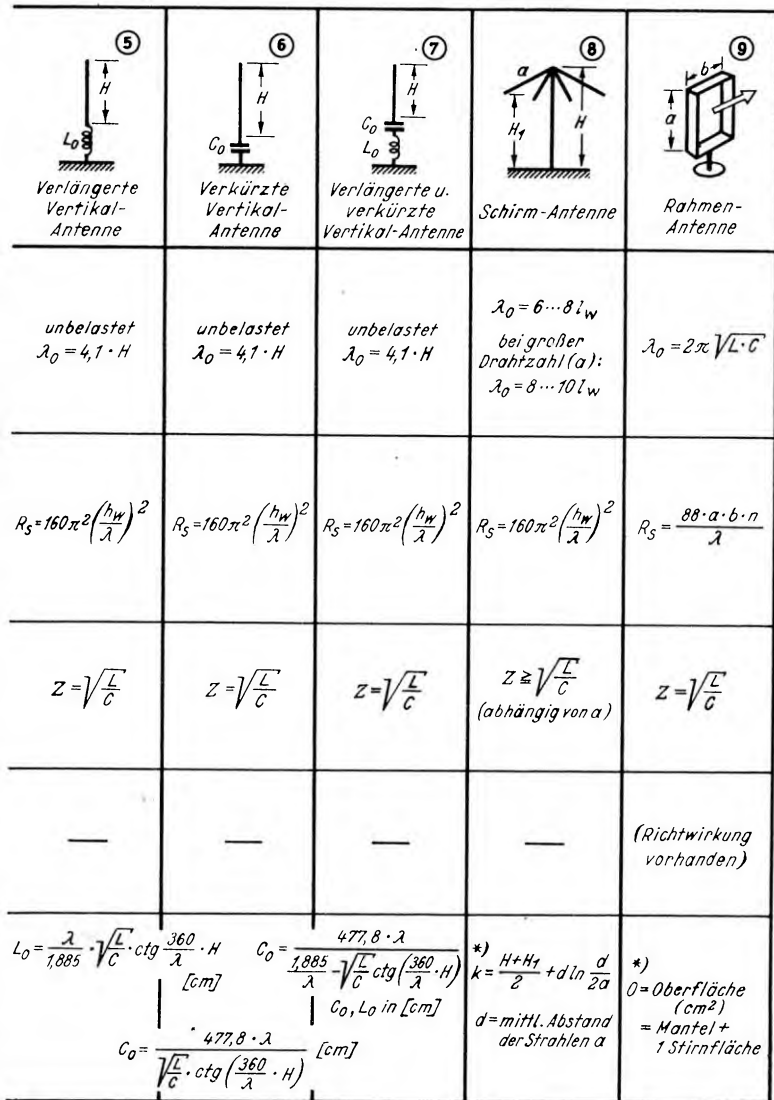 ⑤
H
L₀
Verlängerte
Vertikal-
Antenne
⑥
H
C₀
Verkürzte
Vertikal-
Antenne
⑦
H
C₀
L₀
Verlängerte u.
verkürzte
Vertikal-Antenne
⑧
a
H₁
H
Schirm-Antenne
⑨
b
a
Rahmen-
Antenne
unbelastet
λ₀ = 4,1 · H
unbelastet
λ₀ = 4,1 · H
unbelastet
λ₀ = 4,1 · H
λ₀ = 6···8 l_w
bei großer
Drahtzahl (a):
λ₀ = 8···10 l_w
λ₀ = 2π √(L·C)
R_S = 160π² (h_w/λ)²
R_S = 160π² (h_w/λ)²
R_S = 160π² (h_w/λ)²
R_S = 160π² (h_w/λ)²
R_S = 88·a·b·n/λ
Z = √(L/C)
Z = √(L/C)
Z = √(L/C)
Z ≧ √(L/C)
(abhängig von a)
Z = √(L/C)
—
—
—
—
(Richtwirkung
vorhanden)
L₀ = λ/1,885 · √(L/C) · ctg 360/λ · H
[cm]
C₀ = 477,8 · λ / (√(L/C) · ctg (360/λ · H)) [cm]
C₀ = 477,8 · λ / (1,885/λ − √(L/C) ctg (360/λ · H))
C₀, L₀ in [cm]
*)
k = (H+H₁)/2 + d ln d/2a
d = mittl. Abstand
der Strahlen a
*)
O = Oberfläche
(cm²)
= Mantel +
1 Stirnfläche